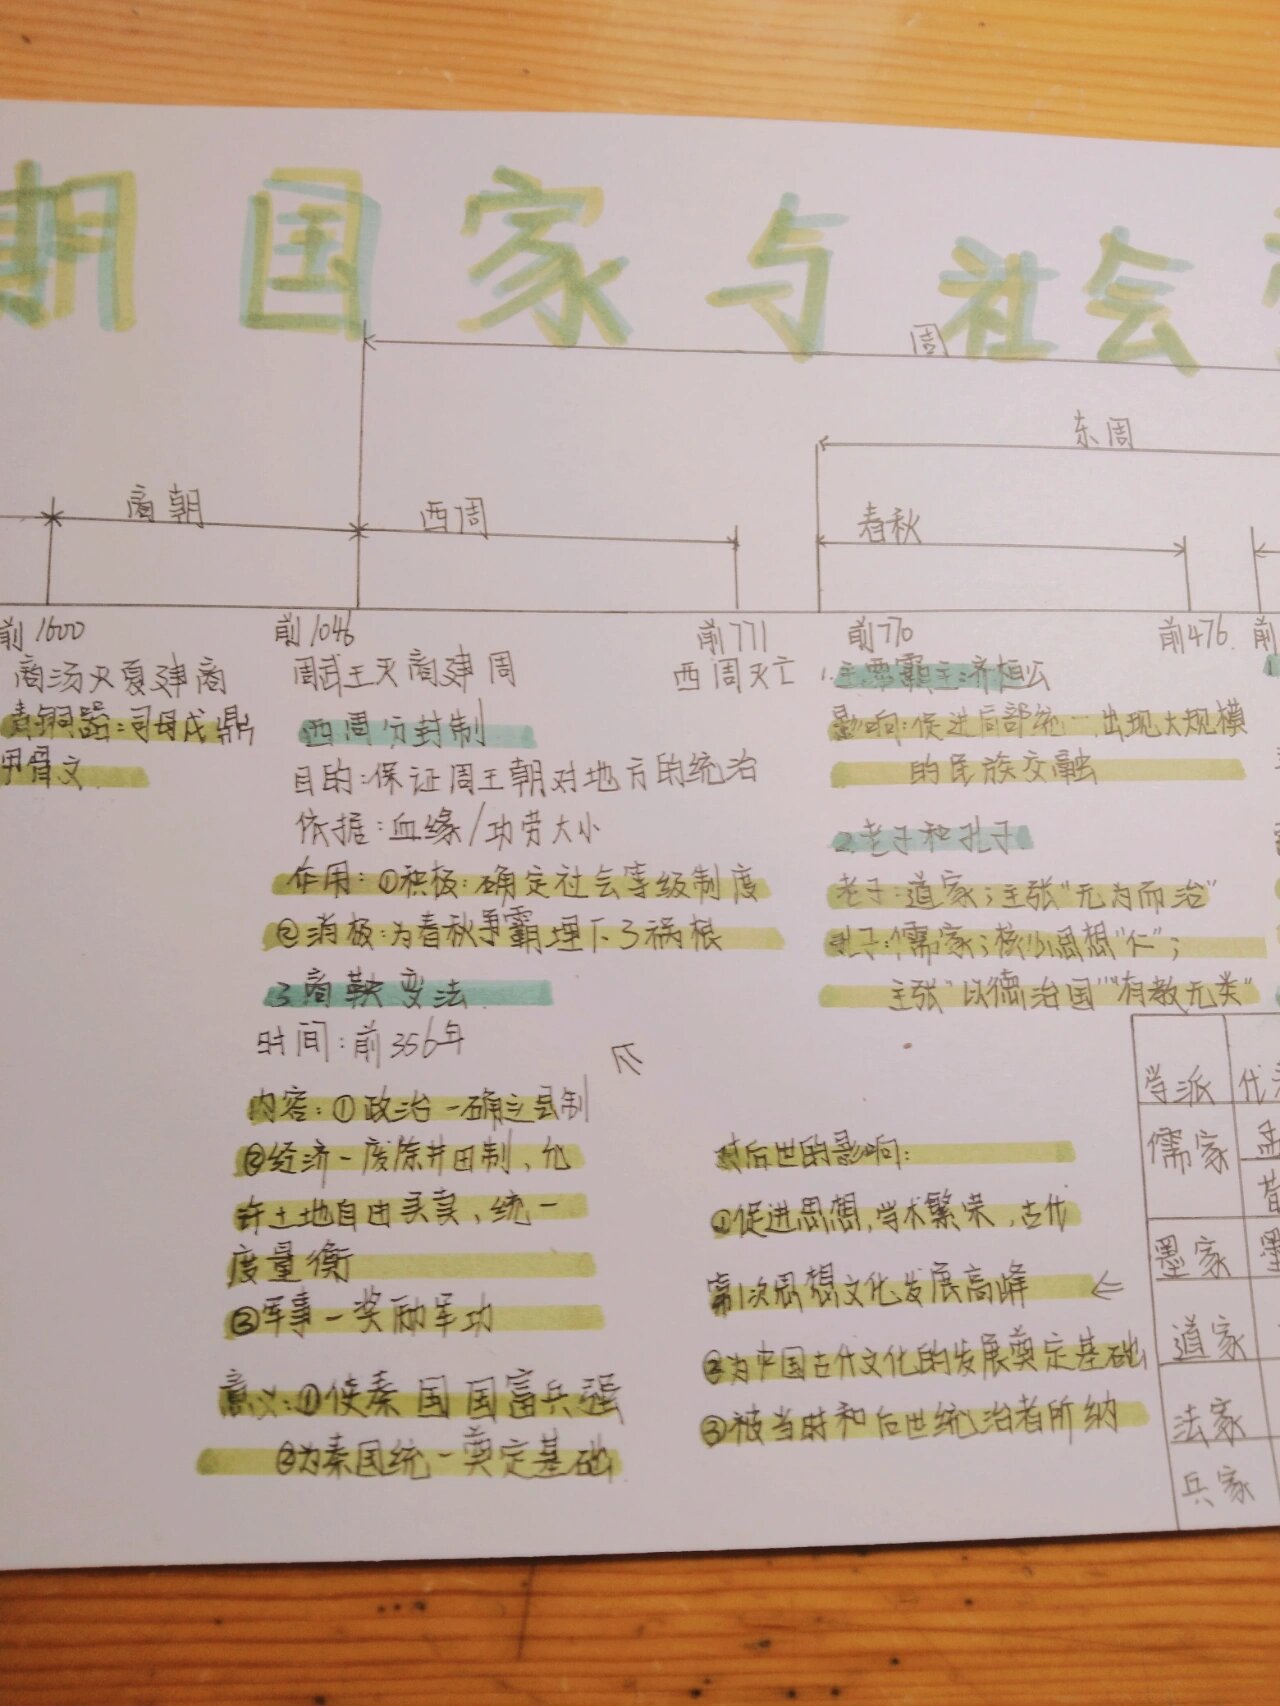 期国家与社会
周
东周
商朝
西周
春秋
前1600
前1046
前771
前770
前476
前
商汤灭夏建商
青铜器:司母戊鼎
甲骨文
周武王灭商建周
西周分封制
目的:保证周王朝对地方的统治
依据:血缘/功劳大小
作用:①积极:确定社会等级制度
②消极:为春秋争霸埋下了祸根
3.商鞅变法
时间:前356年
内容:①政治-确立县制
②经济-废除井田制、允
许土地自由买卖、统一
度量衡
③军事-奖励军功
意义:①使秦国国富兵强
②为秦国统一奠定基础
西周灭亡
1.主要霸主:齐桓公
影响:促进局部统一,出现大规模
的民族交融
2.老子和孔子
老子:道家;主张“无为而治”
孔子:儒家;核心思想“仁”;
主张“以德治国”“有教无类”
对后世的影响:
①促进思想,学术繁荣,古代
第1次思想文化发展高峰
②为中国古代文化的发展奠定基础
③被当时和后世统治者所纳
学派
儒家
墨家
道家
法家
兵家